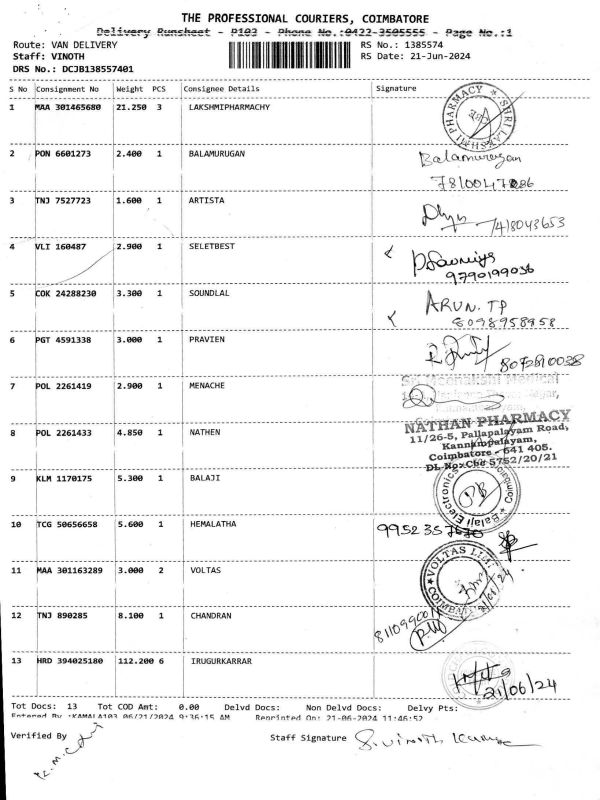 THE PROFESSIONAL COURIERS, COIMBATORE
Delivery Runsheet - P103 - Phone No.:0422-3505555 - Page No.:1
Route: VAN DELIVERY RS No.: 1385574
Staff: VINOTH RS Date: 21-Jun-2024
DRS No.: DCJB138557401
S No Consignment No Weight PCS Consignee Details Signature
1 MAA 301465680 21.250 3 LAKSHMIPHARMACHY
SHRI LAKSHMI PHARMACY
2 PON 6601273 2.400 1 BALAMURUGAN Balamurugan
3 TNJ 7527723 1.600 1 ARTISTA
7418043653
4 VLI 160487 2.900 1 SELETBEST
9790199036
5 COK 24288230 3.300 1 SOUNDLAL ARUN. TP
8098958958
6 PGT 4591338 3.000 1 PRAVIEN
7 POL 2261419 2.900 1 MENACHE
Sri Meenakshi Medical
8 POL 2261433 4.850 1 NATHEN
NATHAN PHARMACY
11/26-5, Pallapalayam Road,
Kannampalayam,
Coimbatore - 641 405.
DL No: Cbe 5752/20/21
9 KLM 1170175 5.300 1 BALAJI
Balaji Electronics
10 TCG 50656658 5.600 1 HEMALATHA
11 MAA 301163289 3.000 2 VOLTAS
VOLTAS
12 TNJ 890285 8.100 1 CHANDRAN
13 HRD 394025180 112.200 6 IRUGURKARRAR
21/06/24
Tot Docs: 13 Tot COD Amt: 0.00 Delvd Docs: Non Delvd Docs: Delvy Pts:
Entered By :KAMALA103 06/21/2024 9:36:15 AM Reprinted On: 21-06-2024 11:46:52
Verified By Staff Signature